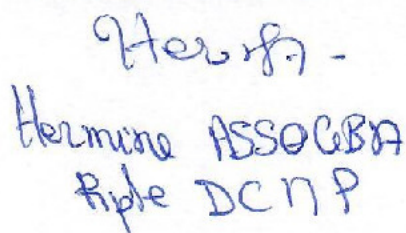 Hermine ASSOGBA
Rple DCMP